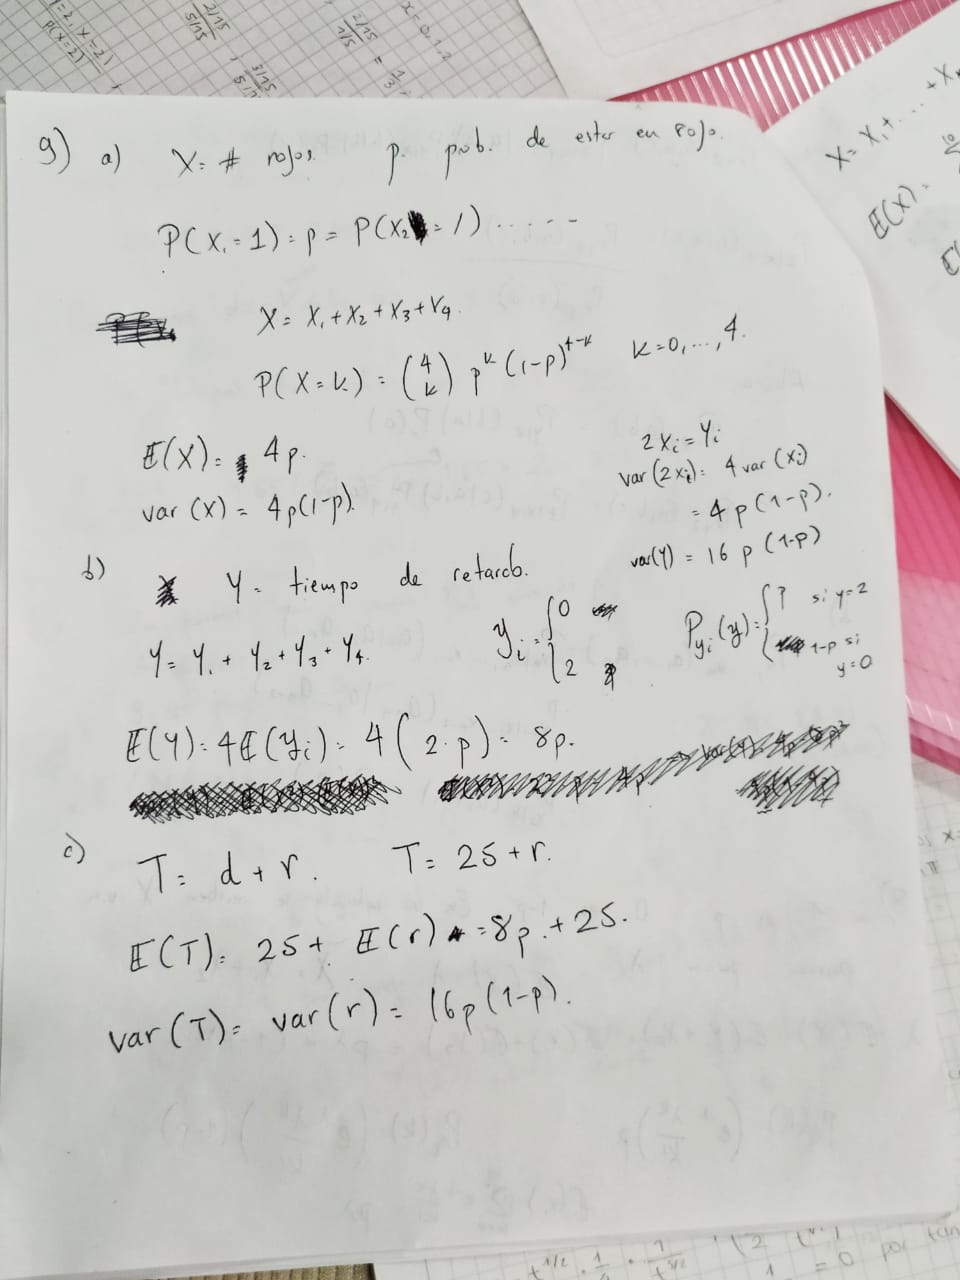 1=2, X=2)
P(X=2)
2/15
5/15
3/15
2/15
1/5
= 1/3,
x=0,1,2
X= X1+ ... + X
E(X) =
10
9) a) X= # rojos. p= prob. de estar en rojo.
P(X1=1)=p= P(X2=1)......
X= X1+X2+X3+X4.
P(X=k) = (4 k) p^k (1-p)^4-k k=0,...,4.
E(X)= 4p.
var (X) = 4p(1-p).
2Xi=Yi
var (2Xi)= 4 var (Xi)
= 4p(1-p).
var(Y) = 16 p (1-p)
b) Y= tiempo de retardo.
Y= Y1+ Y2+Y3+Y4.
yi= { 0
2
Pyi(y)= { p si y=2
1-p si
y=0
E(Y)= 4E(Yi)= 4(2·p)= 8p.
c) T= d+r. T= 25+r.
E(T)= 25+ E(r) =8p.+25.
var(T)= var(r)= 16p(1-p).
= 0 por